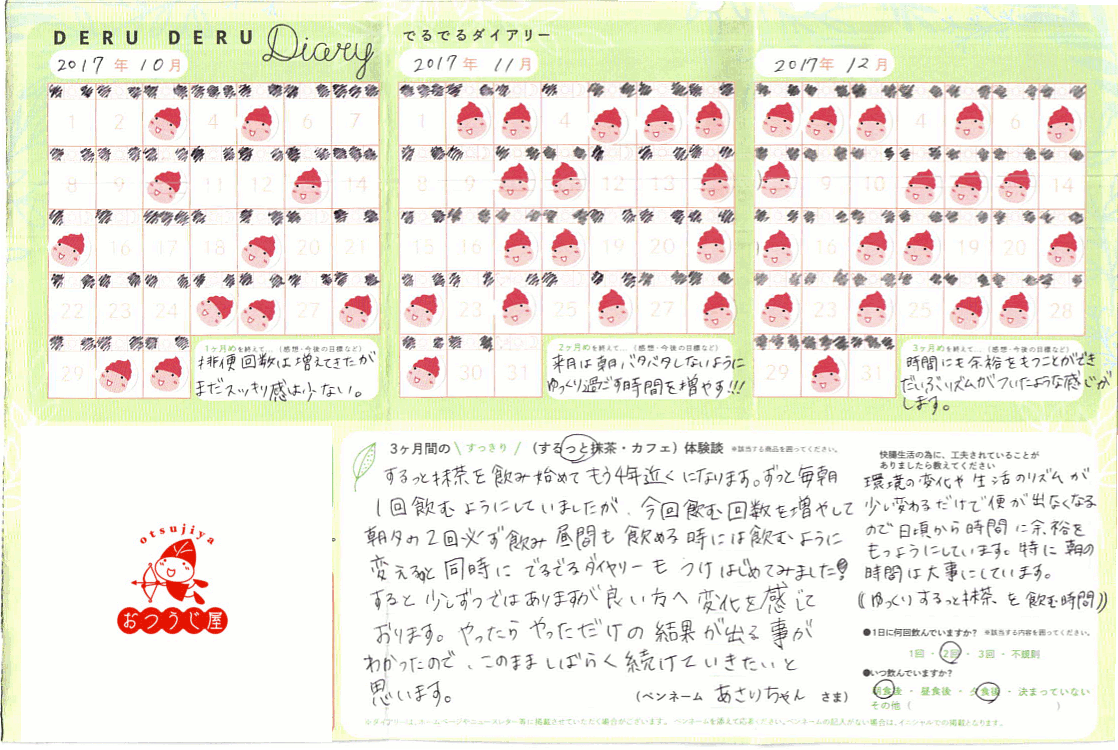 DERU DERU Diary でるでるダイアリー
2017年10月
1 2 4 6 7
8 9 11 12 14
16 17 18 20 21
22 23 24 27
29
1ヶ月めを終えて...（感想・今後の目標など）
排便回数は増えてきたが
まだスッキリ感は少ない。
2017年11月
1 4
8 9 12 13
15 16 19 20
23 25 27
30 31
2ヶ月めを終えて...（感想・今後の目標など）
来月は朝バタバタしないように
ゆっくり過ごす時間を増やす!!!
2017年12月
4 6
9 10 14
16 20
23 25 28
29 31
3ヶ月めを終えて...（感想・今後の目標など）
時間にも余裕をもつことができ
だいぶリズムがついたような感じが
します。
otsujiya
おつうじ屋
3ヶ月間の\すっきり/（するっと抹茶・カフェ）体験談 ※該当する商品を囲ってください。
するっと抹茶を飲み始めてもう4年近くになります。ずっと毎朝
1回飲むようにしていましたが、今回飲む回数を増やして
朝夕の2回必ず飲み昼間も飲める時には飲むように
変えると同時にでるでるダイヤリーもつけはじめてみました!
すると少しずつではありますが良い方へ変化を感じて
おります。やったらやっただけの結果が出る事が
わかったので、このまましばらく続けていきたいと
思います。
（ペンネーム あさりちゃん さま）
快腸生活の為に、工夫されていることが
ありましたら教えてください
環境の変化や生活のリズムが
少し変わるだけで便が出なくなる
ので日頃から時間に余裕を
もつようにしています。特に朝の
時間は大事にしています。
((ゆっくりするっと抹茶を飲む時間))
●1日に何回飲んでいますか? ※該当する内容を囲ってください。
1回・2回・3回・不規則
●いつ飲んでいますか?
朝食後・昼食後・夕食後・決まっていない
その他（ ）
※ダイアリーは、ホームページやニュースレター等に掲載させていただく場合がございます。ペンネームを添えてご応募ください。ペンネームの記入がない場合は、イニシャルでの掲載となります。